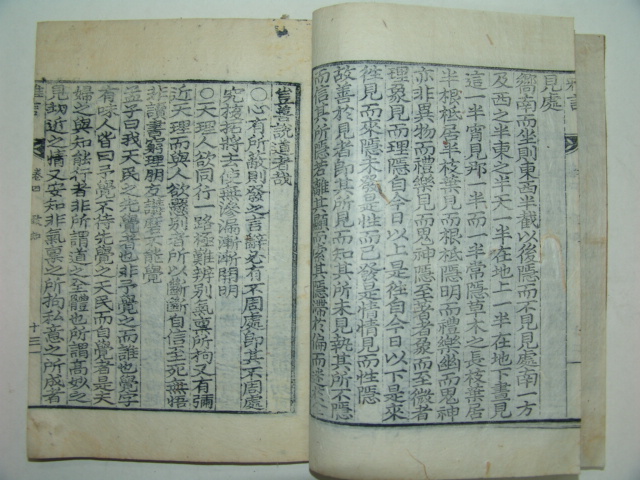 雅言
見處
嚮南而坐則東西半截以後隱而不見見處南一方
及西之半東之半天一半在地上一半在地下晝見
這一半宵見那一半而一半常隱草木之長枝葉居
半根柢居半枝葉見而根柢隱明而禮樂幽而鬼神
亦非異物而禮樂見而鬼神隱至著者象而至微者
理象見而理隱自今日以上是往自今日以下是來
往見而來隱未發是性而已發是情情見而性隱
故善於見者即其所見而知其所未見執其所不隱
而信其所隱若離其顯而索其隱滯於偏而迷
豈莫說道者哉
〇心有所敵則發之言辭必有不周處即其不周處
究核拓將去使無滲漏漸漸開明
〇天理人欲同行一路極難辨別氣稟所拘又有彌
近天理而與人欲懸別者所以斷斷自信至死無悟
非讀書窮理朋友講磨不能覺
孟子曰我天民之先覺者也非予覺之而誰也覺字
有味人皆曰予覺不待先覺之天民而自覺者是夫
婦之與知能行者非所謂道之全體也所謂高妙之
見幼近之情又安知非氣稟之所拘私意之所成者
雅言
卷四
十三